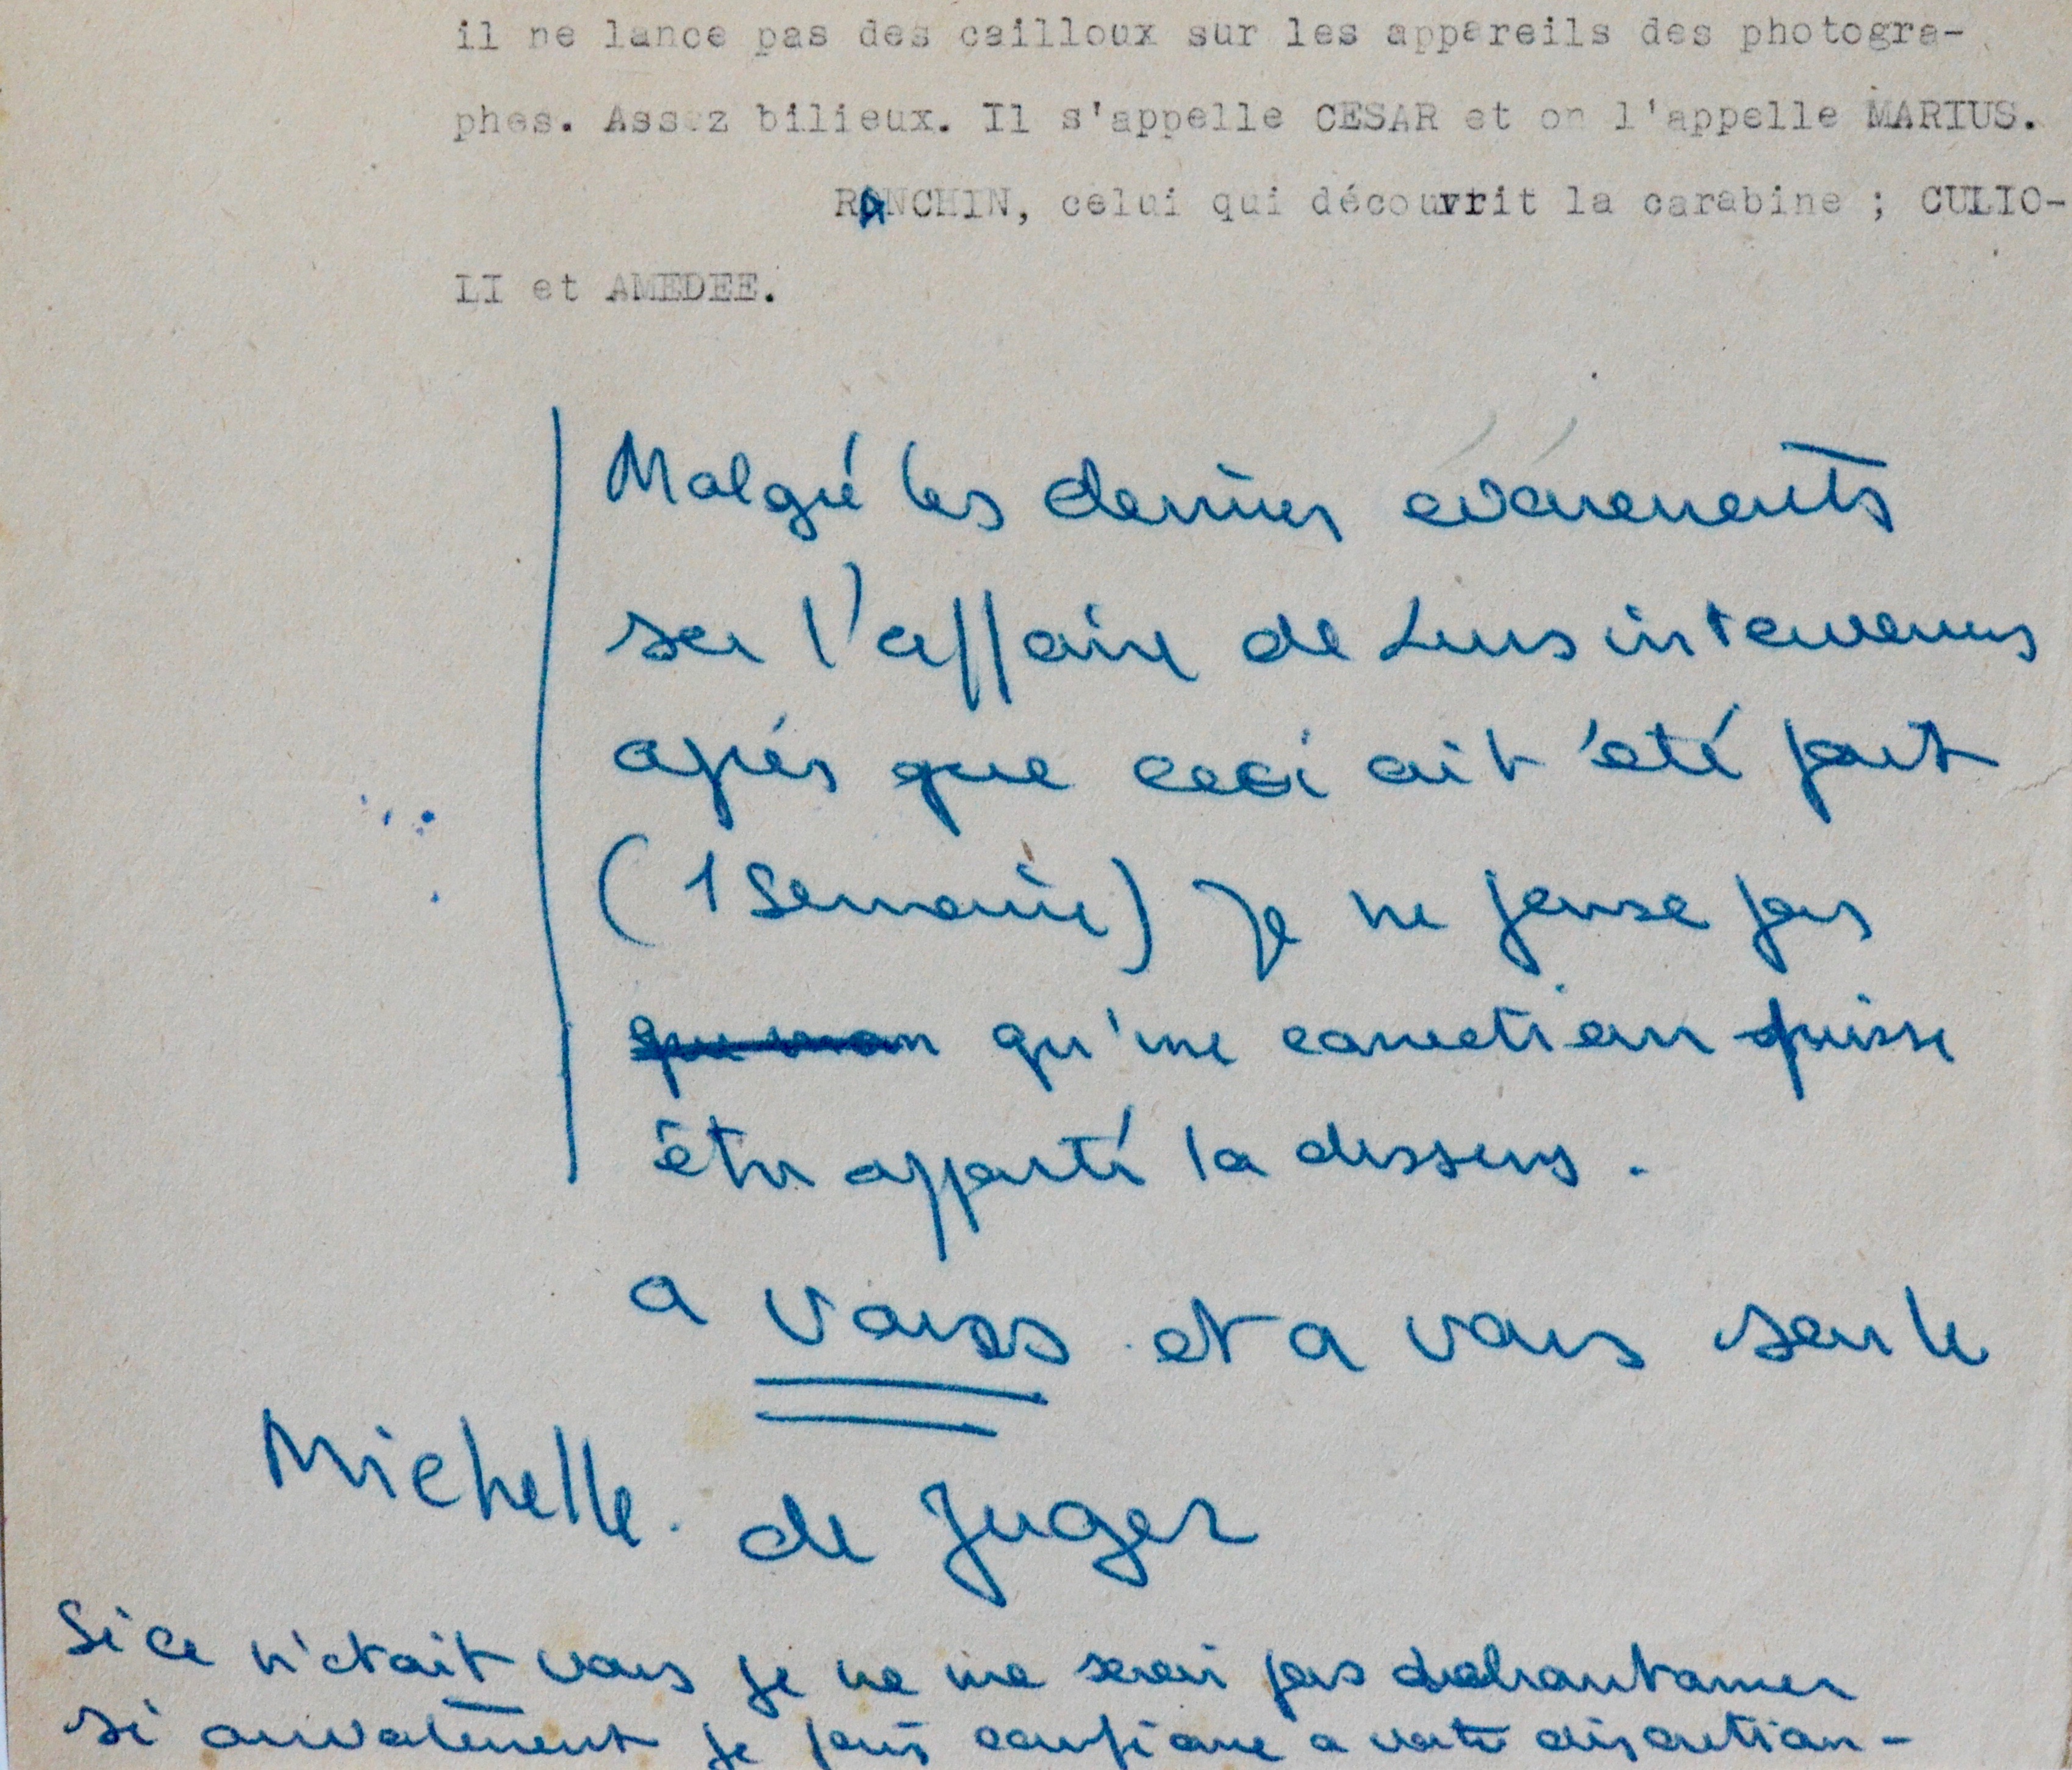 il ne lance pas des cailloux sur les appareils des photogra-
phes. Assez bilieux. Il s'appelle CESAR et on l'appelle MARIUS.
RANCHIN, celui qui découvrit la carabine ; CULIO-
LI et AMEDEE.
Malgré les derniers événements
sur l'affaire de Lurs intervenus
après que ceci ait été fait
(1 Semaine) Je ne pense pas
que mon qu'une correction puisse
être apporté la dessus.
a vous et a vous seule
Michelle de Juger
Si ce n'etait vous je ne me serai pas
si ouvertement je fais confiance a votre discretion -